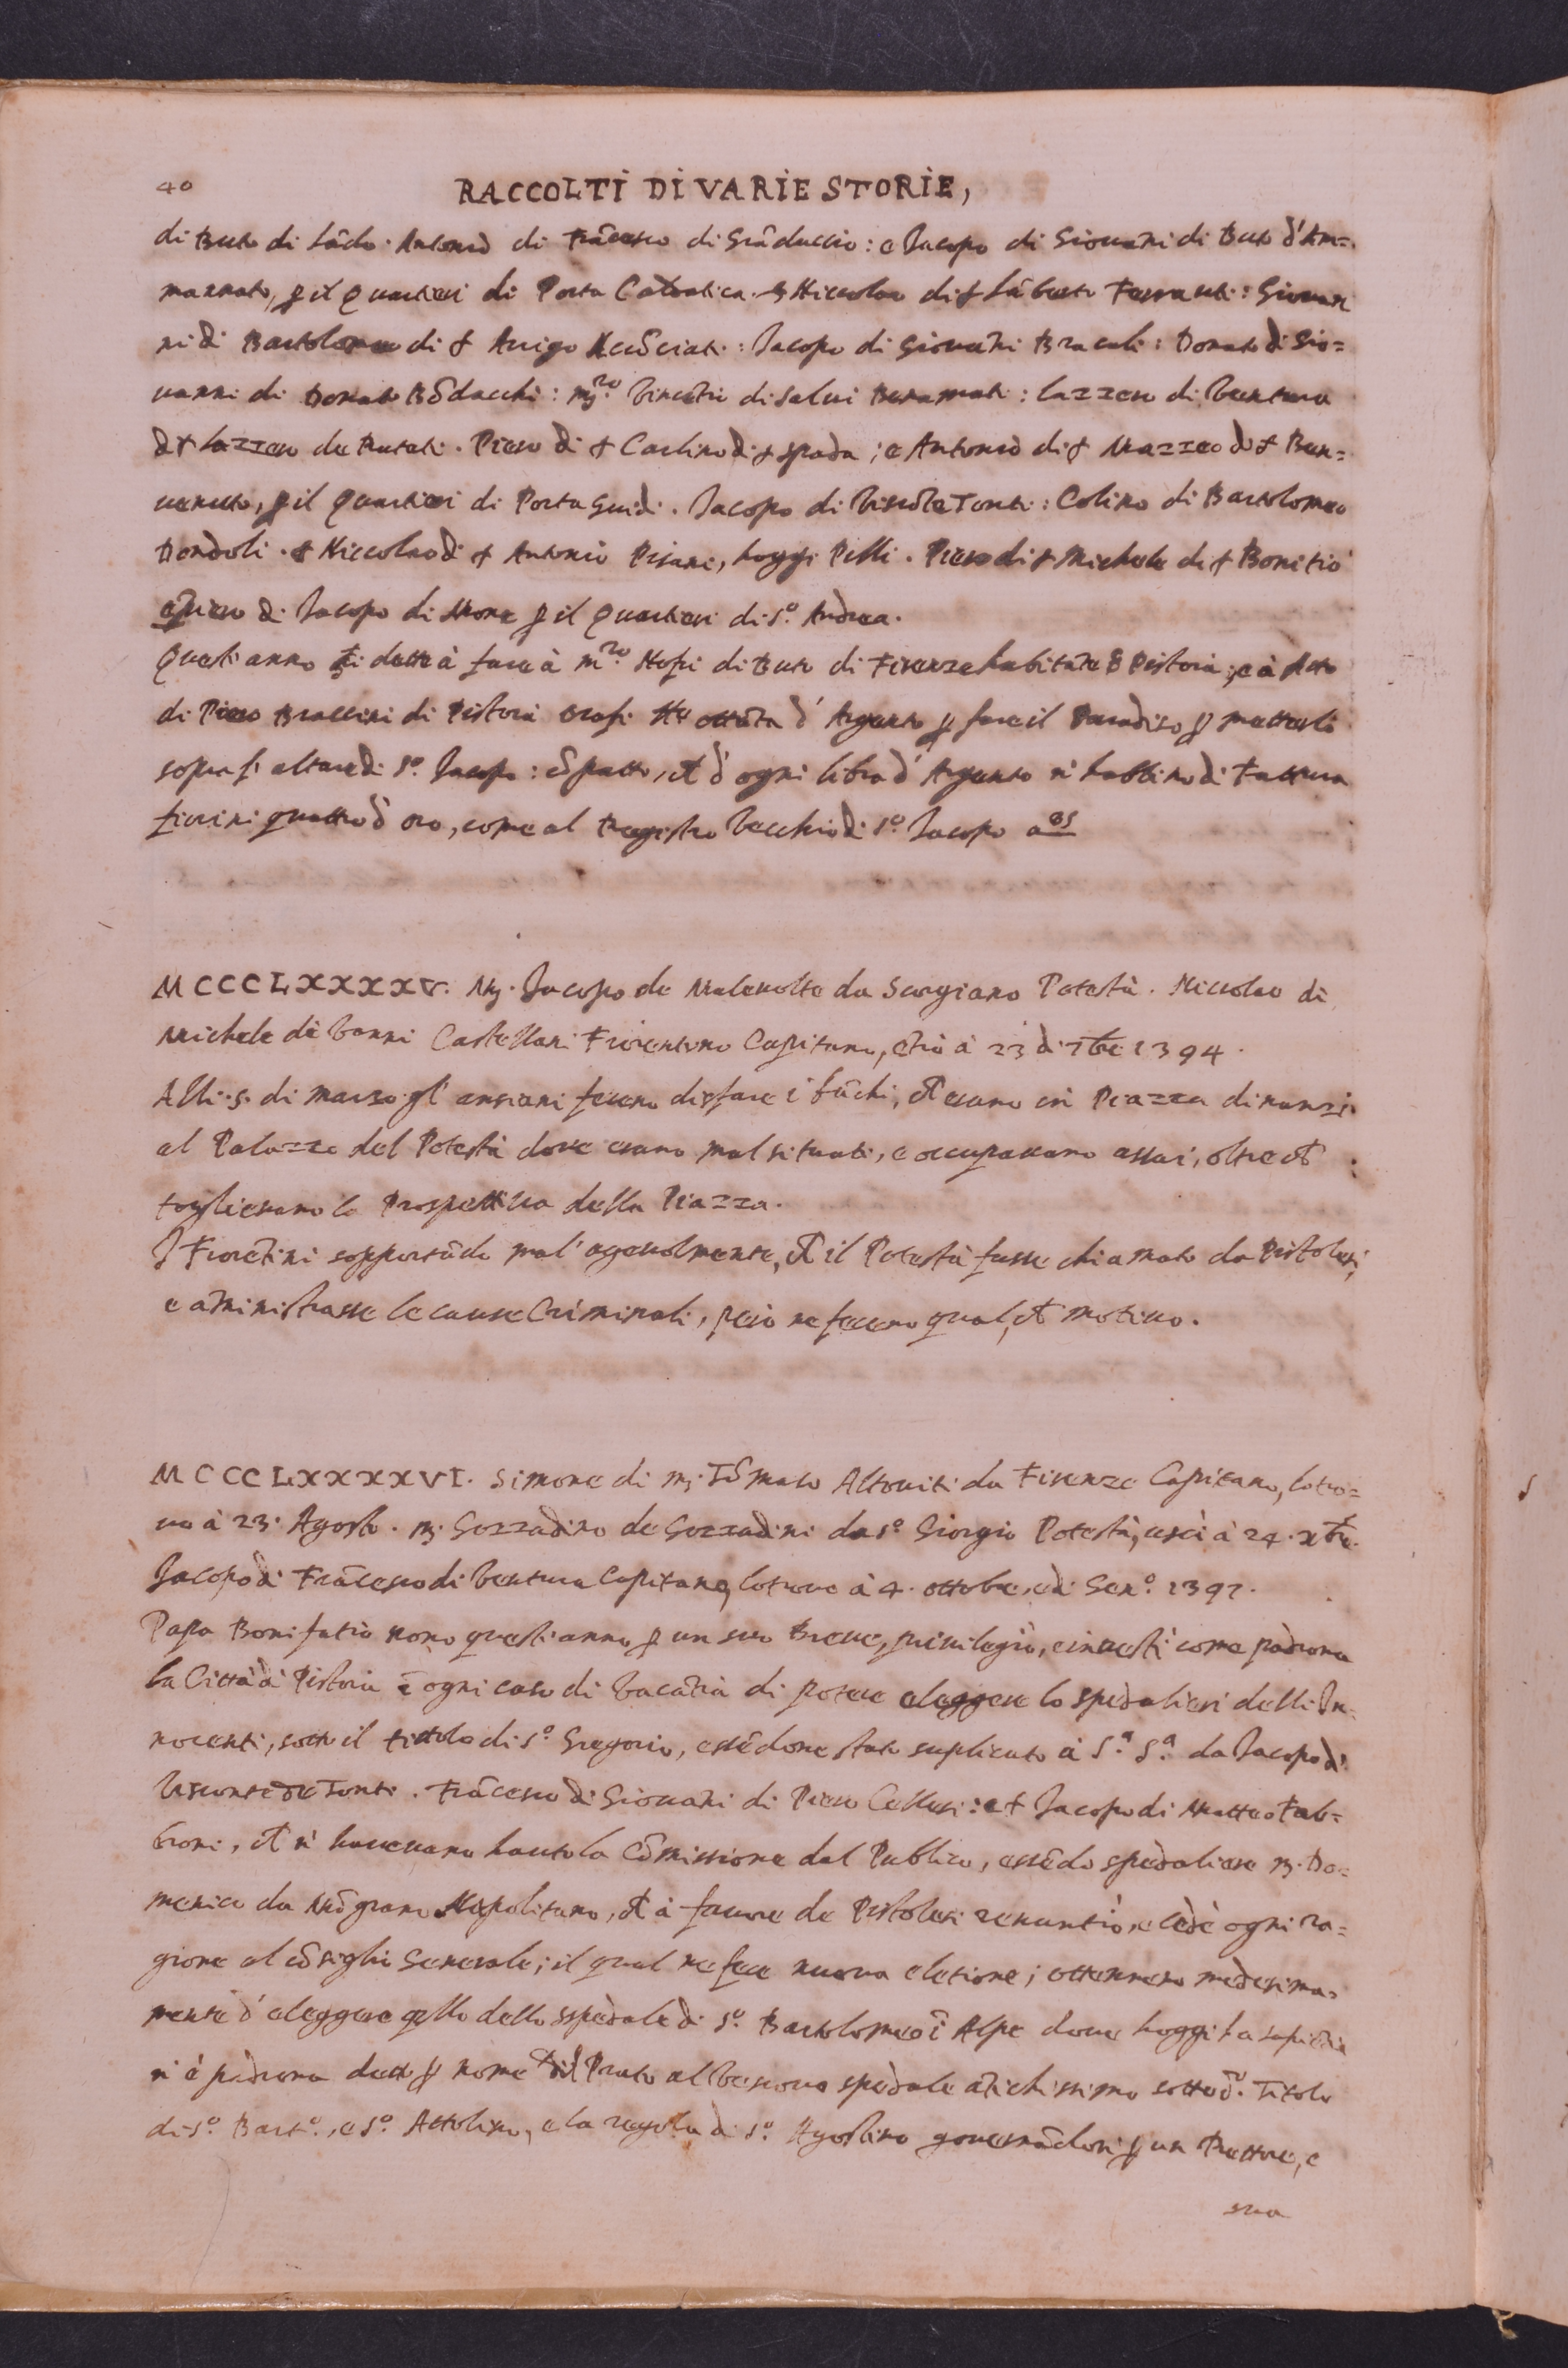 40
RACCOLTI DI VARIE STORIE,
di Buto di Lãdo. Antonio di Frãcesco di Grãduccio: e Jacopo di Giovãni di Buto d'Am=
mannato, p il Quartieri di Porta Caldatica. Niccolao di s Lãberto Ferranti: Giovan
ni di Bartolomeo di s Arrigo: Jacopo di Giovãni Bracali: Donato di Gio=
vanni di Donato Bõdacchi: m.ro Vincẽtio di Salvi Benamati: Lazzero di Ventura
di s Lazzero de Rutati. Piero di s Carlino di s Spada; e Antonio di s Mazzeo di s Ben=
venuto, p il Quartieri di Porta Guidi. Jacopo di Viscõte Tonti: Colino di Bartolomeo
Dondoli. s Niccolao di s Antonio Pisani, hoggi Pilli. Piero di s Michele di s Bonitio
e Piero di Jacopo di Mone p il Quartieri di S.o Andrea.
Quest'anno si dette à fare à m.ro Nofri di Buto di Firenze habitãte ĩ Pistoia; e à Atto
di Piero Braccini di Pistoia Orafi ottãta d'Argento p fare il Paradiso p metterlo
sopra l'altare di S.o Jacopo: cõ patto, ch d'ogni libra d'Argento n'habbino di Fattura
fiorini quattro d'oro, come al Registro Vecchio di S.o Jacopo a 85
MCCCLXXXXV. M. Jacopo de Malevolte da Sargiano Potestà. Niccolao di
Michele di Vanni Castellani Fiorentino Capitano, ẽtrò à 23 di 7bre 1394.
Alli .5. di marzo gl'anziani fecero disfare i bãchi, ch erano in Piazza dinanzi
al Palazzo del Potestà dove erano mal situati, e occupavano assai, oltre ch
toglievano la Prospettiva della Piazza.
I Fiorẽtini sopportãdo mal'agevolmente, ch il Potestà fusse chiamato da Pistolesi,
e aministrasse le cause Criminali, però ne fecero qual, ch motivo.
MCCCLXXXXVI. Simone di m. Tõmaso Altoviti da Firenze Capitano, lo tro=
vo à 23. Agosto. m. Gozzadino de Gozzadini da S.o Giorgio Potestà, uscì à 24. xbre.
Jacopo di Frãcesco di Ventura Capitano, lo trovo à 4. ottobre, e di Gen.o 1397.
Papa Bonifatio nono quest'anno p un suo Breve, privilegiò, e investì come padrona
la Città di Pistoia ĩ ogni caso di Vacãtia di potere eleggere lo spedalieri delli In=
nocenti, sotto il tittolo di S.o Gregorio, essẽdone stato suplicato à S.a S.a da Jacopo di
Visconte de Tonti. Frãcesco di Giovãni di Piero Cellesi: e s Jacopo di Matteo Fab=
broni, ch n'havevano hauto la Cõmissione dal Publico, essẽdo spedaliere m. Do=
menico da Mõgrano Napolitano, ch à favore de Pistolesi renuntiò, e cedè ogni ra=
gione al cõsiglio Generale; il qual ne fece nuova eletione; ottennero medesima=
mente d'eleggere qllo dello sspedale di S.o Bartolomeo ĩ Alpe dove hoggi la sapiẽtia
n'è padrona detto p nome del Prato al Vescovo spedale ãtichissimo sotto d.o Titolo
di S.o Bart.o, e S.o Attolino, e la regola di S.o Agostino governãdosi p un Rettore, e
sua